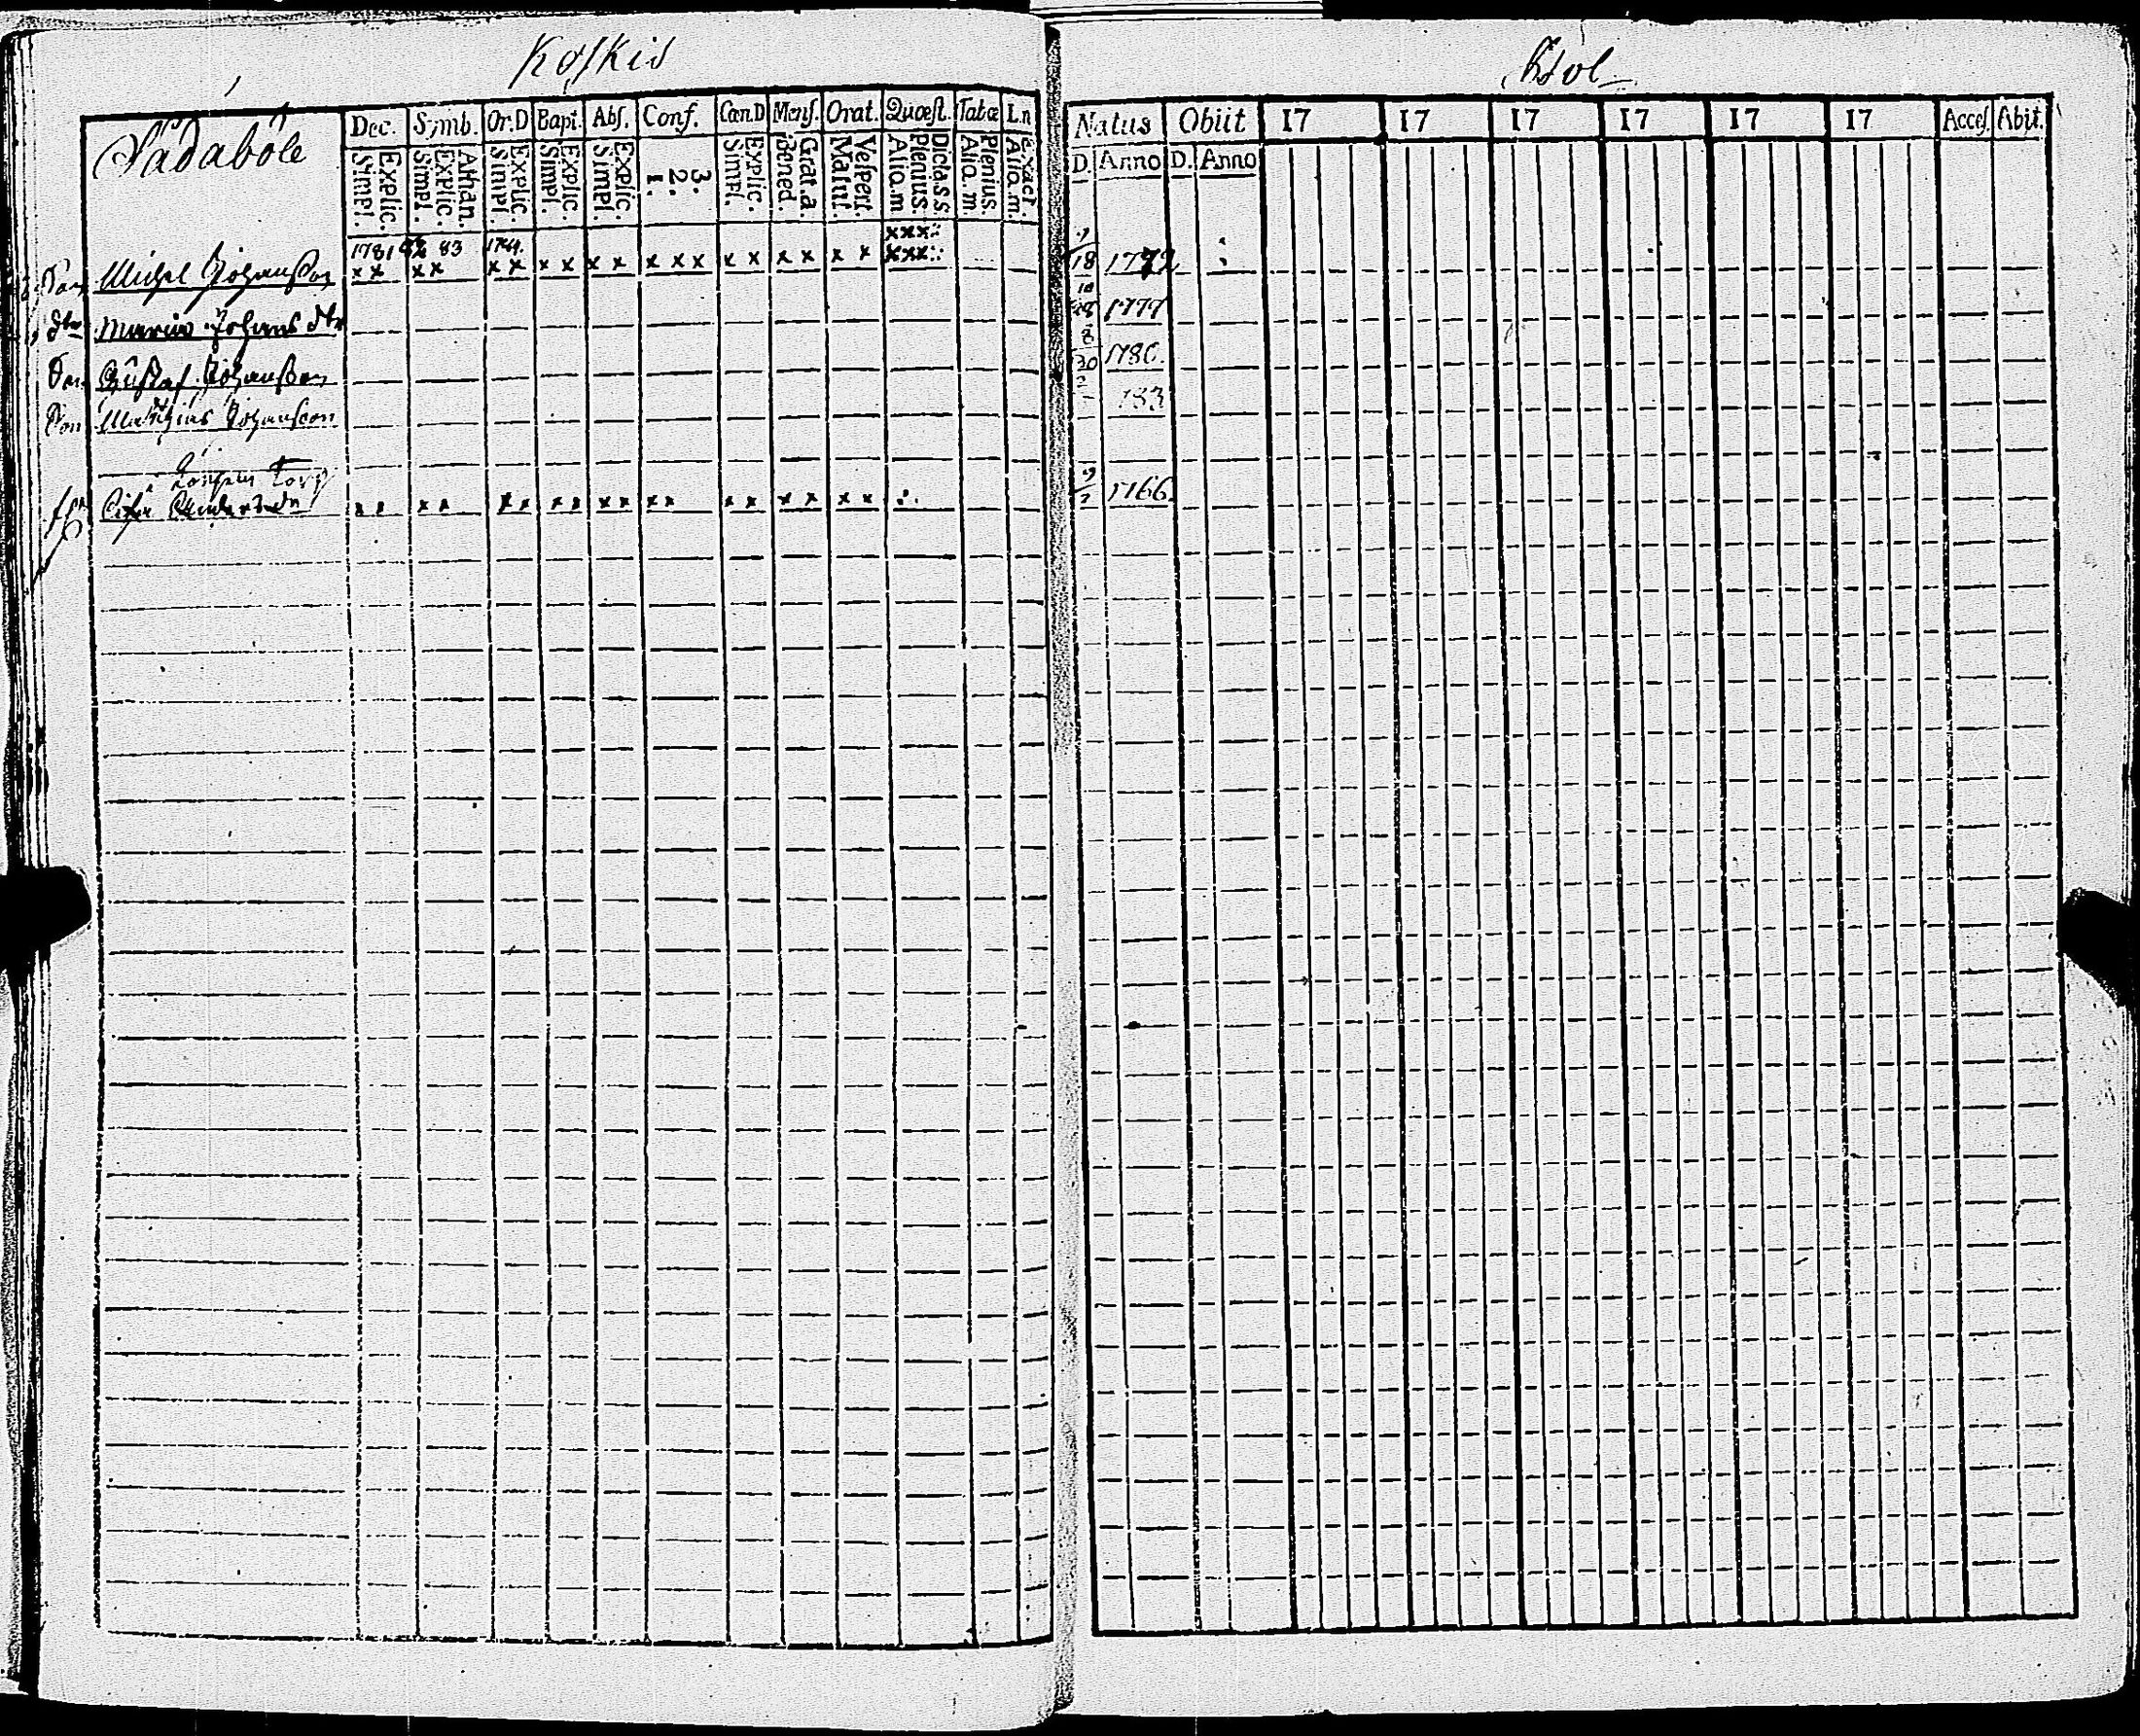 Koskis
Kol
Sådaböle
Dec. Symb. Or.D Bapt. Abs. Conf. Cœn.D Mens. Orat. Quæst. Tabæ Ln
Simpl. Explic. Simpl. Explic. Athan. Simpl. Explic. Simpl. Explic. Simpl. Explic. 1. 2. 3. Simpl. Explic. Bened. Grat.a. Matut. Vespert. Aliq.m Plenius. Dicta.s.s Aliq.m Plenius. Aliq.m. Exact.
Natus Obiit 17 17 17 17 17 17 Acces. Abit.
D. Anno D. Anno
1781 82 83 1784.
Son Michel Johansson x x x x x x x x x x x x x x x x x x x x x x x x x x 18 1772
dtr Maria Johans dtr 10 28 1777
Son Gustaf Johansson 8 30 1780.
Son Matthias Johansson 2 183
Torp
x x x x x x x x x x x x x x x x x x 9 1766.